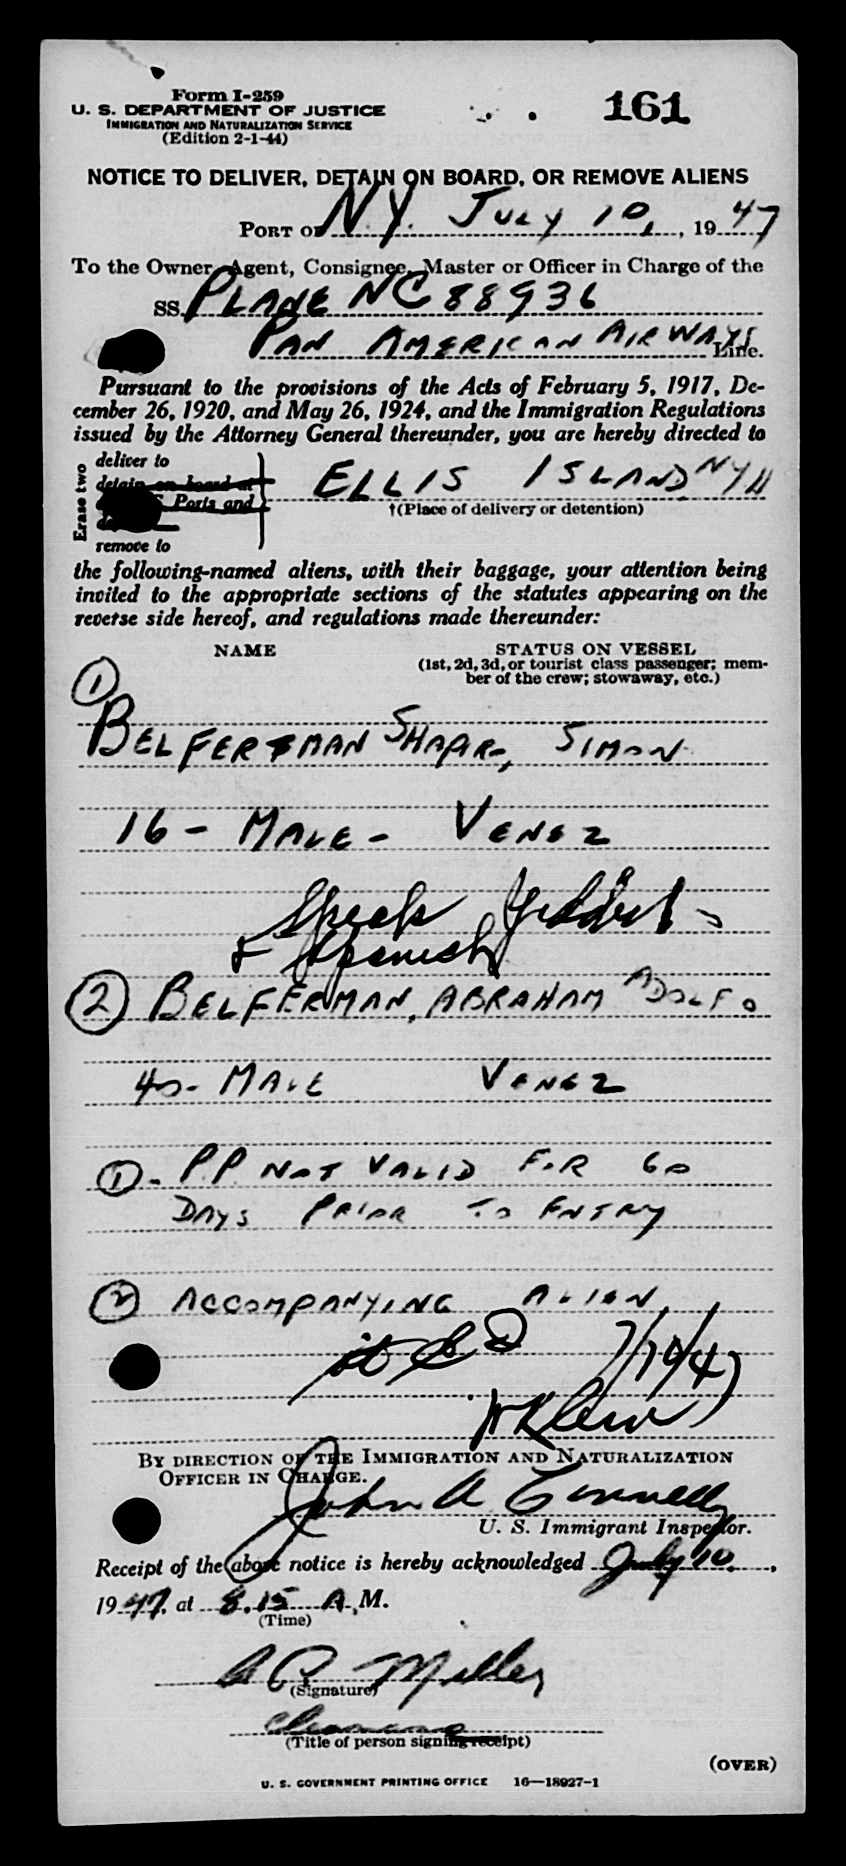 Form I-259
U. S. DEPARTMENT OF JUSTICE
IMMIGRATION AND NATURALIZATION SERVICE
(Edition 2-1-44)
161
NOTICE TO DELIVER, DETAIN ON BOARD, OR REMOVE ALIENS
PORT OF N.Y. JULY 10, , 19 47
To the Owner, Agent, Consignee, Master or Officer in Charge of the
SS PLANE NC 88936
PAN AMERICAN AIRWAYS Line.
Pursuant to the provisions of the Acts of February 5, 1917, De-
cember 26, 1920, and May 26, 1924, and the Immigration Regulations
issued by the Attorney General thereunder, you are hereby directed to
Erase two
deliver to
detain on board at
Ports and
remove to
ELLIS ISLAND NYH
†(Place of delivery or detention)
the following-named aliens, with their baggage, your attention being
invited to the appropriate sections of the statutes appearing on the
reverse side hereof, and regulations made thereunder:
NAME STATUS ON VESSEL
(1st, 2d, 3d, or tourist class passenger; mem-
ber of the crew; stowaway, etc.)
1
BELFERMAN SHAPR, SIMON
16 - MALE - VENEZ
Speak Yiddish
+ Spanish
2 BELFERMAN, ABRAHAM ADOLFO
40 - MALE VENEZ
1 - P.P. NOT VALID FOR 60
DAYS PRIOR TO ENTRY
2 ACCOMPANYING ALIEN
7/10/47
BY DIRECTION OF THE IMMIGRATION AND NATURALIZATION
OFFICER IN CHARGE.
John A Connelly
U. S. Immigrant Inspector.
Receipt of the above notice is hereby acknowledged July 10, ,
19 47, at 8.15 A.M.
(Time)
A P Miller
(Signature)
(Title of person signing receipt)
(OVER)
U. S. GOVERNMENT PRINTING OFFICE 16—18927-1